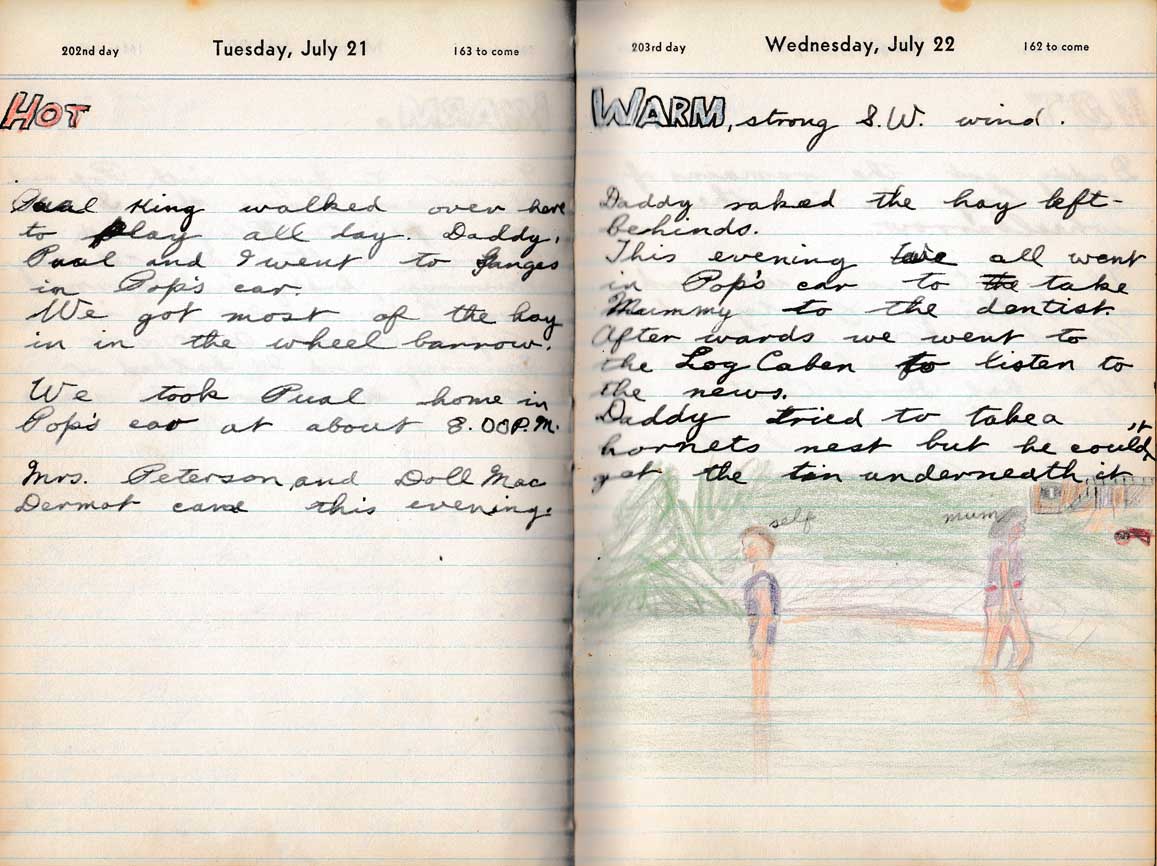 202nd day Tuesday, July 21 163 to come
HOT
Paul King walked over here
to play all day. Daddy,
Paul and I went to Ganges
in Pop's car.
We got most of the hay
in in the wheel barrow.
We took Pual home in
Pop's car at about 8.00 P.M.
Mrs. Peterson, and Doll Mac
Dermot came this evening.
203rd day Wednesday, July 22 162 to come
WARM, strong S.W. wind.
Daddy raked the hay left-
behinds.
This evening we all went
in Pop's car to the take
Mummy to the dentist.
After wards we went to
the Log Caben to listen to
the news.
Daddy tried to take a
hornets nest but he could,'t
get the tin underneath it
self mum